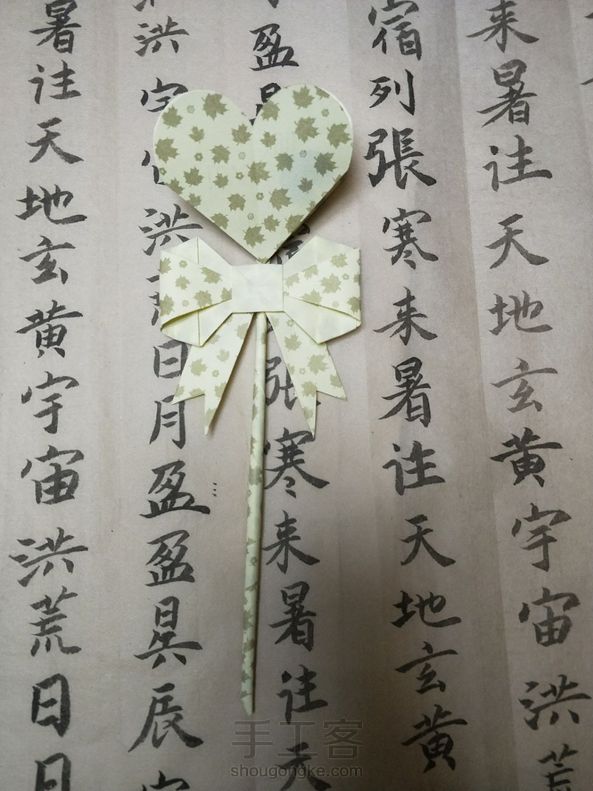 来暑往天地玄黄宇宙洪荒
宿列張寒来暑往天地玄黄
盈昃張寒来暑往天
洪宇洪日月盈盈昃辰
暑往天地玄黄宇宙洪荒日日
手工客
shougongke.com